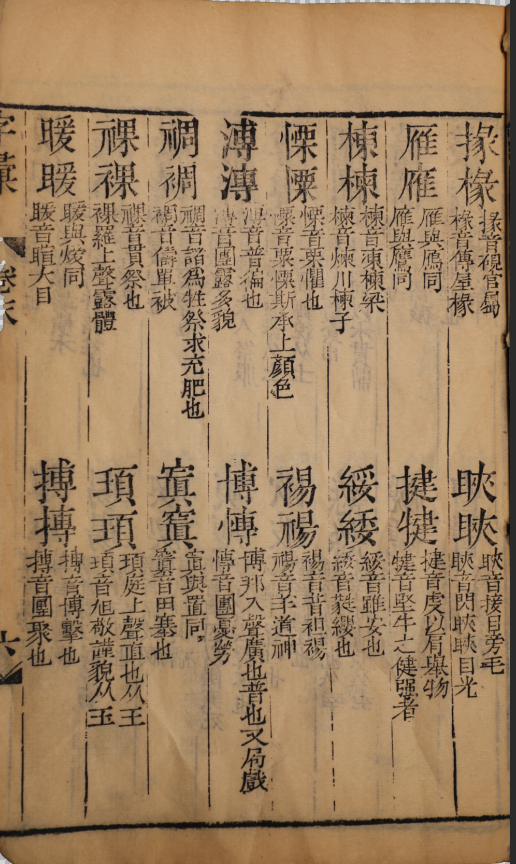 掾椽
掾音硯官屬
椽音傳屋椽
雁䧹
雁與鴈同
䧹與鷹同
棟楝
棟音凍棟梁
楝音煉川楝子
慄憟
慄音栗懼也
憟音粟憟斯承上顏色
溥漙
溥音普徧也
漙音團露多貌
禂裯
禂音諸爲牲祭求充肥也
裯音儔單被
祼裸
祼音貫祭也
裸羅上聲露體
暖䁔
暖與煖同
䁔音暄大目
䀹䀹
䀹音接目旁毛
䀹音閃䀹䀹目光
揵犍
揵音虔以肩舉物
犍音堅牛之健强者
綏緌
綏音雖安也
緌音蕤纓也
裼禓
裼音昔袒裼
禓音羊道神
博慱
博邦入聲廣也普也又局戲
慱音團憂勞
寘窴
寘與置同
窴音田塞也
頊頊
頊庭上聲直也从王
頊音旭敬謹貌从玉
搏摶
搏音博擊也
摶音團聚也
字彙
卷末
六